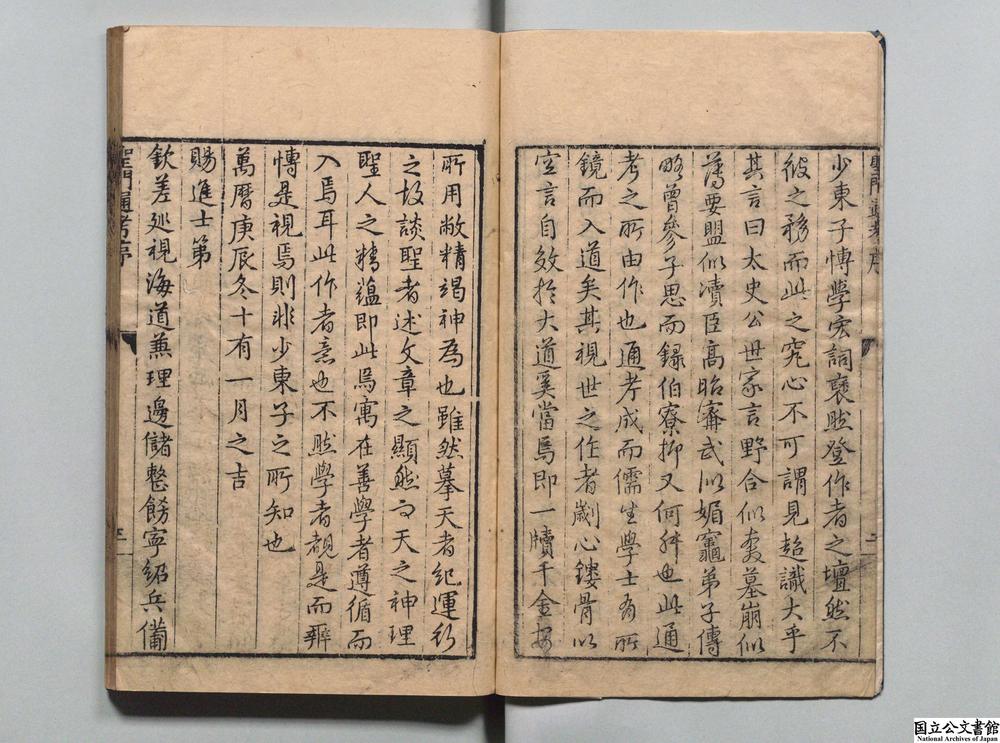 聖門通考序
少東子博學宏詞裒然登作者之壇然不
彼之務而此之究心不可謂見超識大乎
其言曰太史公世家言野合似玄墓崩似
薄要盟似瀆臣高昭竊武以媚竈弟子傳
略曾參子思而錄伯寮抑又何舛也此通
考之所由作也通考成而儒生學士有所
鏡而入道矣其視世之作者劌心鏤骨以
空言自效於大道奚當焉即一牘千金安
所用敝精竭神為也雖然摹天者紀運行
之故談聖者述文章之顯然而天之神理
聖人之精蘊即此焉寓在善學者遵循而
入焉耳此作者意也不然學者覩是而
博是視焉則非少東子之所知也
萬曆庚辰冬十有一月之吉
賜進士第
欽差廵視海道兼理邊儲整飭寧紹兵備
聖門通考序
三
国立公文書館
National Archives of Japan